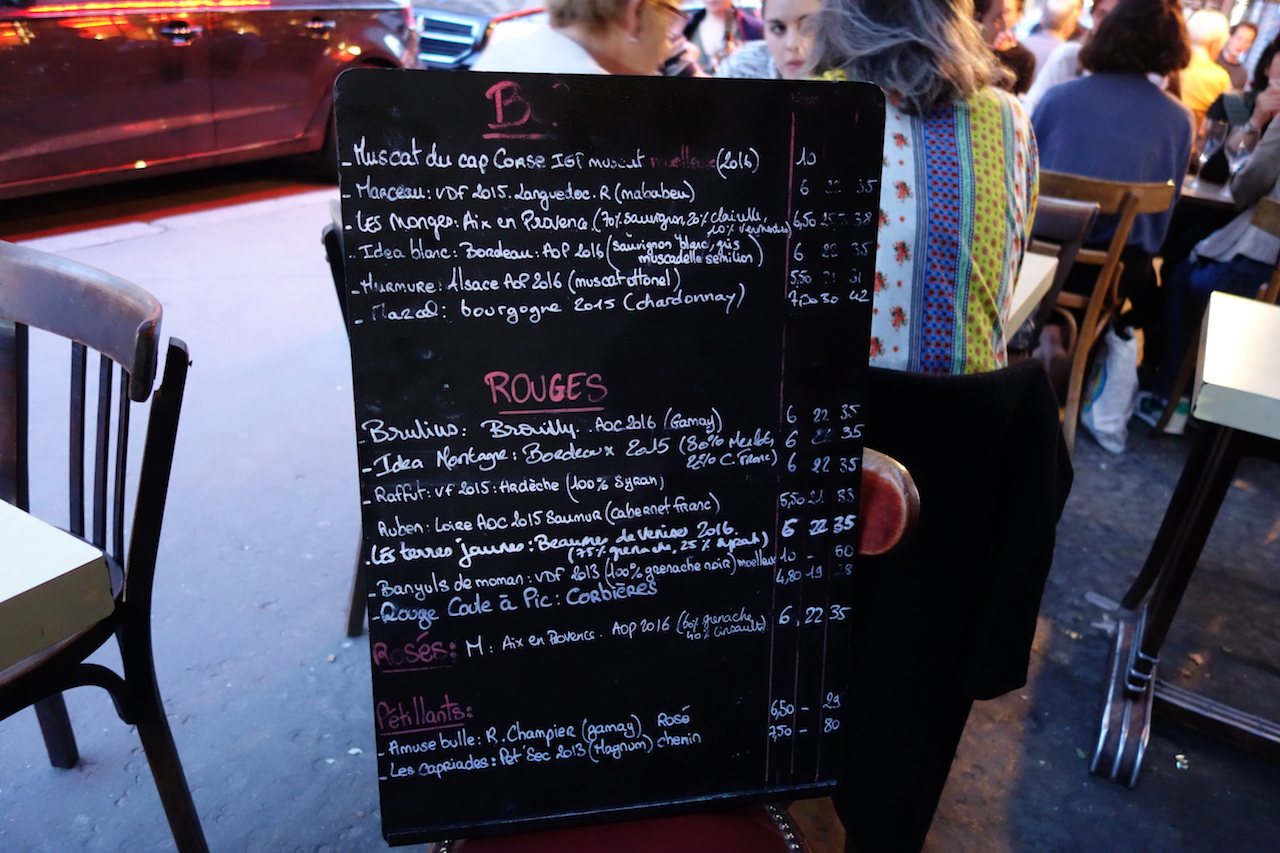 B
- Muscat du cap Corse IGP muscat moelleux (2016) 10
- Marceau: VDF 2015. Languedoc. R (mababeu) 6 22 35
- Les Monges: Aix en Provence (70% sauvignon, 20% clairette, 6,50 38
10% vermentino)
- Idea blanc: Bordeau: AOP 2016 (sauvignon blanc, gris 6 22 35
muscadelle semilion)
- Murmure: Alsace AOP 2016 (muscat ottonel) 5,50 21 31
- Mazal: bourgogne 2015 (chardonnay) 7,00 30 42
ROUGES
- Brulius: Brouilly. AOC 2016 (Gamay) 6 22 35
- Idea Montagne: Bordeaux 2015 (80% Merlot, 6 22 35
22% C. Franc)
- Raffut: VF 2015: Ardèche (100% Syrah) 6 22 35
Auben: Loire AOC 2015 Saumur (cabernet franc) 5,50 21 33
- Les terres jaunes: Beaumes de Venises 2016 6 22 35
(75% grenache, 25% syrah)
- Banyuls de maman: VDF 2013 (100% grenache noir) moelleux 10 - 60
- Rouge Coule à Pic: Corbières 4,80 19 28
Rosés: M: Aix en Provence. AOP 2016 (60% grenache, 6, 22 35
40% cinsault)
Pétillants:
- Amuse bulle: R. Champier (gamay) Rosé 6,50 - 29
- Les Capriades: Pet' Sec 2013 (Magnum) chenin 7,50 - 80